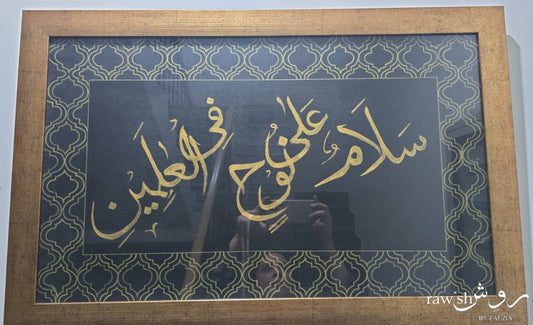 سَلَامٌ عَلَىٰ نُوحٍ فِي الْعَالَمِينَ
rawsh روش
BY FAEZIA